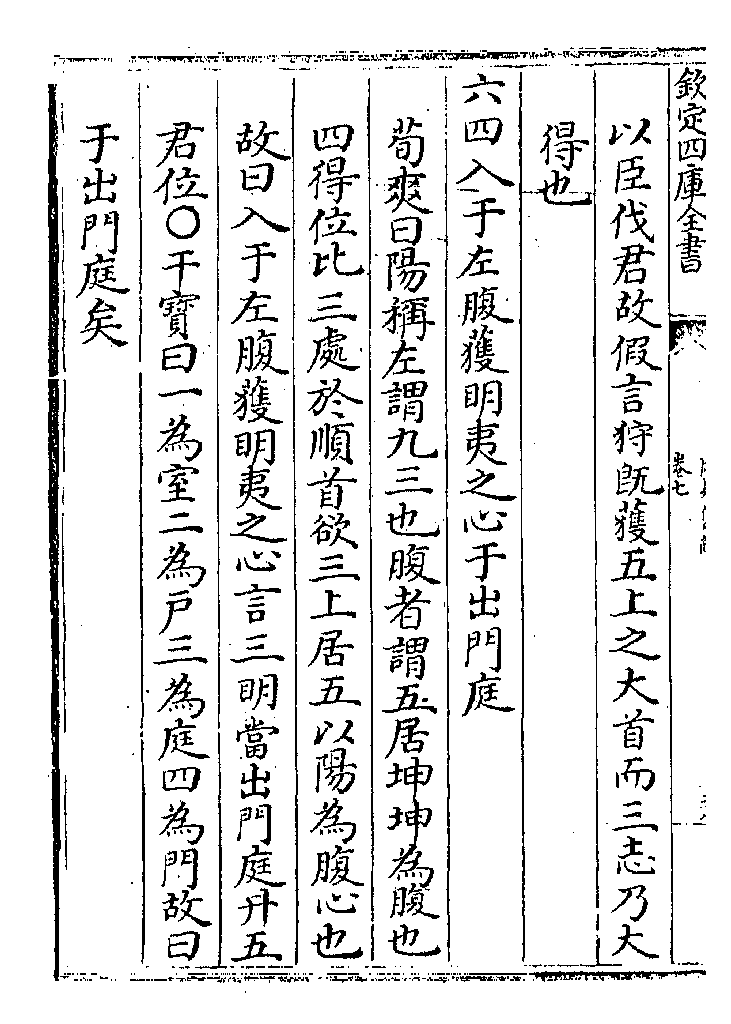 欽定四庫全書
卷七
以臣伐君故假言狩既獲五上之大首而三志乃大
得也
六四入于左腹獲明夷之心于出門庭
荀爽曰陽稱左謂九三也腹者謂五居坤坤為腹也
四得位比三處於順首欲三上居五以陽為腹心也
故曰入于左腹獲明夷之心言三明當出門庭升五
君位〇干寶曰一為室二為戶三為庭四為門故曰
于出門庭矣